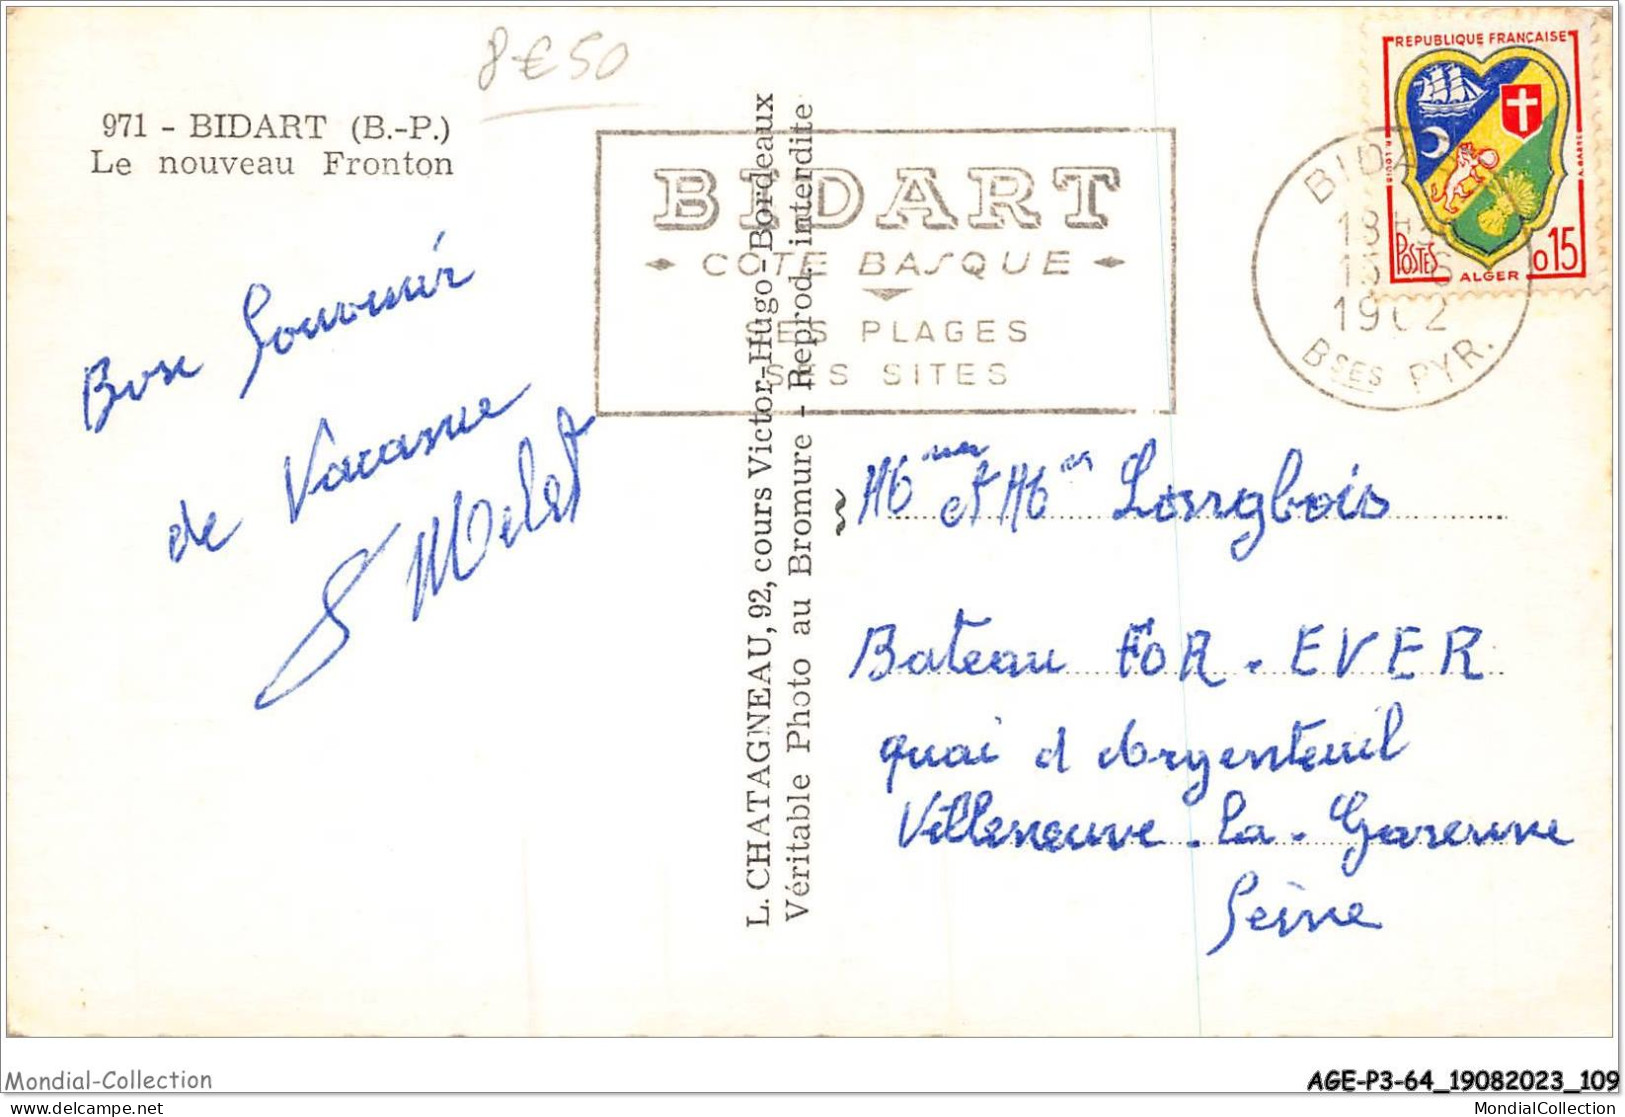 8€50
971 - BIDART (B.-P.)
Le nouveau Fronton
BIDART
COTE BASQUE
SES PLAGES
SES SITES
REPUBLIQUE FRANÇAISE
POSTES
ALGER
0,15
BIDA
18H
1962
BSES PYR.
L. CHATAGNEAU, 92, cours Victor-Hugo - Bordeaux
Véritable Photo au Bromure - Reprod. interdite
Bon Souvenir
de Vacance
Longbois
Bateau FOR-EVER
quai d Argenteuil
Villeneuve-la-Garenne
Seine
Mondial-Collection
AGE-P3-64_19082023_109
delcampe.net
MondialCollection